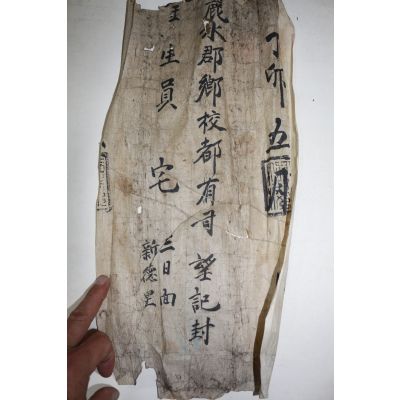 丁卯 五
麗水郡鄕校都有司 望記封
生員 宅
三日面
新德里